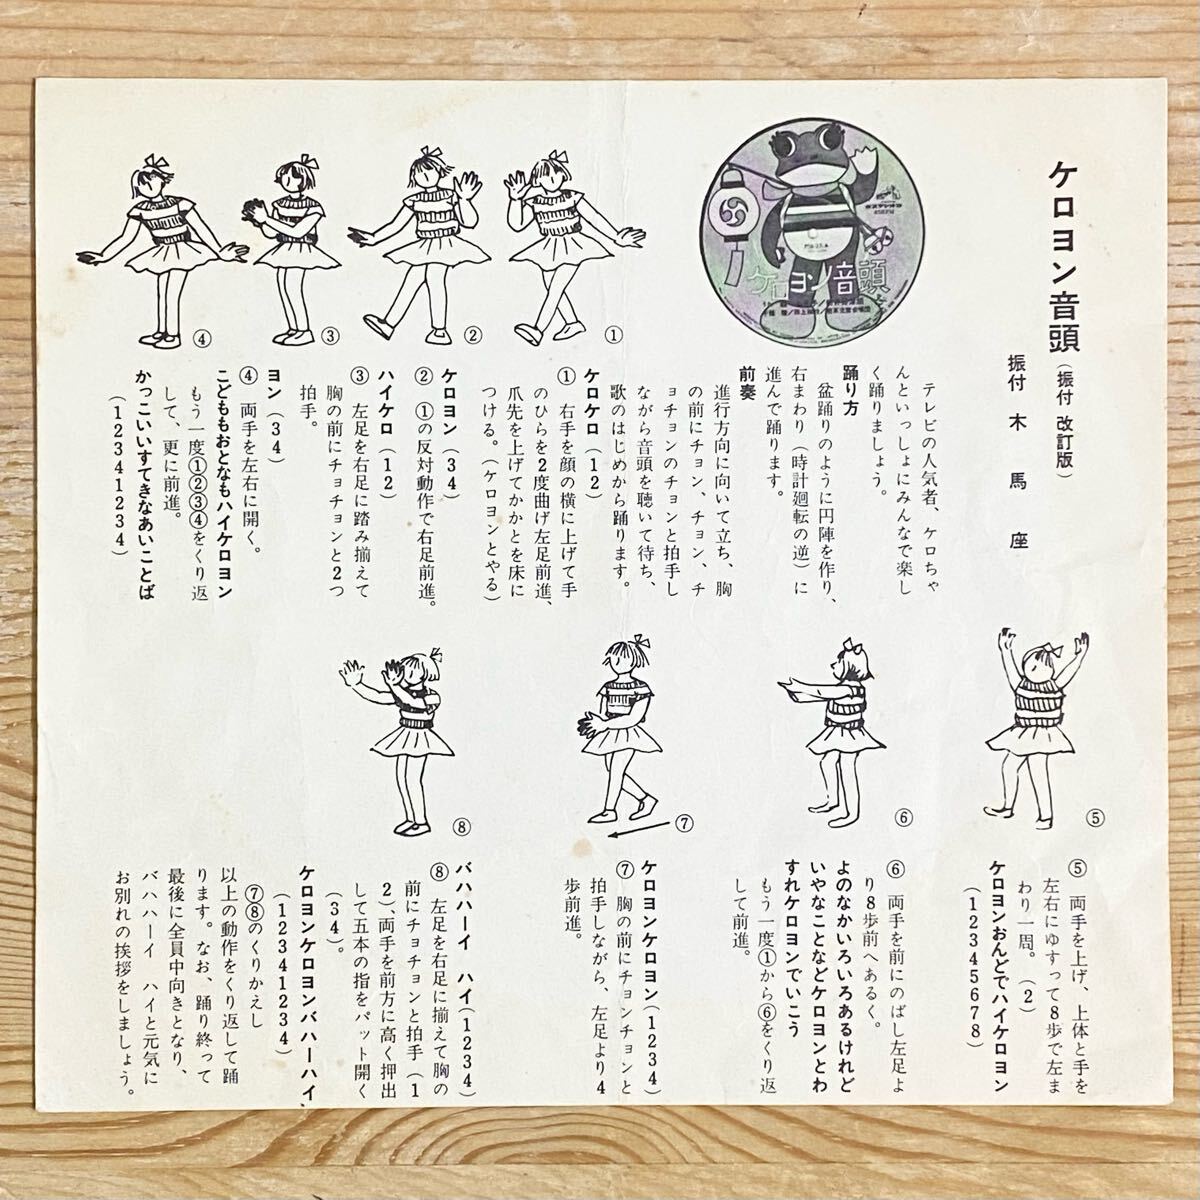 ケロヨン音頭（振付 改訂版）
振付 木馬座
テレビの人気者、ケロちゃ
んといっしょにみんなで楽し
く踊りましょう。
踊り方
盆踊りのように円陣を作り、
右まわり（時計廻転の逆）に
進んで踊ります。
前奏
進行方向に向いて立ち、胸
の前にチョン、チョン、チ
ョチョンのチョンと拍手し
ながら音頭を聴いて待ち、
歌のはじめから踊ります。
ケロケロ（12）
① 右手を顔の横に上げて手
のひらを2度曲げ左足前進、
爪先を上げてかかとを床に
つける。（ケロヨンとやる）
ケロヨン（34）
② ①の反対動作で右足前進。
ハイケロ（12）
③ 左足を右足に踏み揃えて
胸の前にチョチョンと2つ
拍手。
ヨン（34）
④ 両手を左右に開く。
こどももおとなもハイケロヨン
もう一度①②③④をくり返
して、更に前進。
かっこいいすてきなあいことば
（12341234）
①
②
③
④
ケロヨン音頭
⑤
⑥
⑦
⑧
⑤ 両手を上げ、上体と手を
左右にゆすって8歩で左ま
わり一周。（2）
ケロヨンおんどでハイケロヨン
（12345678）
⑥ 両手を前にのばし左足よ
り8歩前へあるく。
よのなかいろいろあるけれど
いやなことなどケロヨンとわ
すれケロヨンでいこう
もう一度①から⑥をくり返
して前進。
ケロヨンケロヨン（1234）
⑦ 胸の前にチョンチョンと
拍手しながら、左足より4
歩前進。
バハハーイ ハイ（1234）
⑧ 左足を右足に揃えて胸の
前にチョチョンと拍手（1
2）、両手を前方に高く押出
して五本の指をパット開く
（34）。
ケロヨンケロヨンバハーハイ、
（12341234）
⑦⑧のくりかえし
以上の動作をくり返して踊
ります。なお、踊り終って
最後に全員中向きとなり、
バハハーイ ハイと元気に
お別れの挨拶をしましょう。